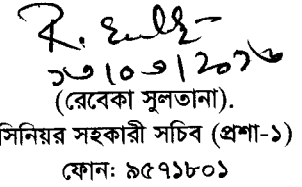 ২৩/০৩/২০১৬
(রেবেকা সুলতানা).
সিনিয়র সহকারী সচিব (প্রশা-১)
ফোন: ৯৫৭১৮০১